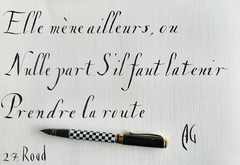 Elle mène ailleurs, ou
Nulle part. S'il faut la tenir
Prendre la route
AG
27 Road